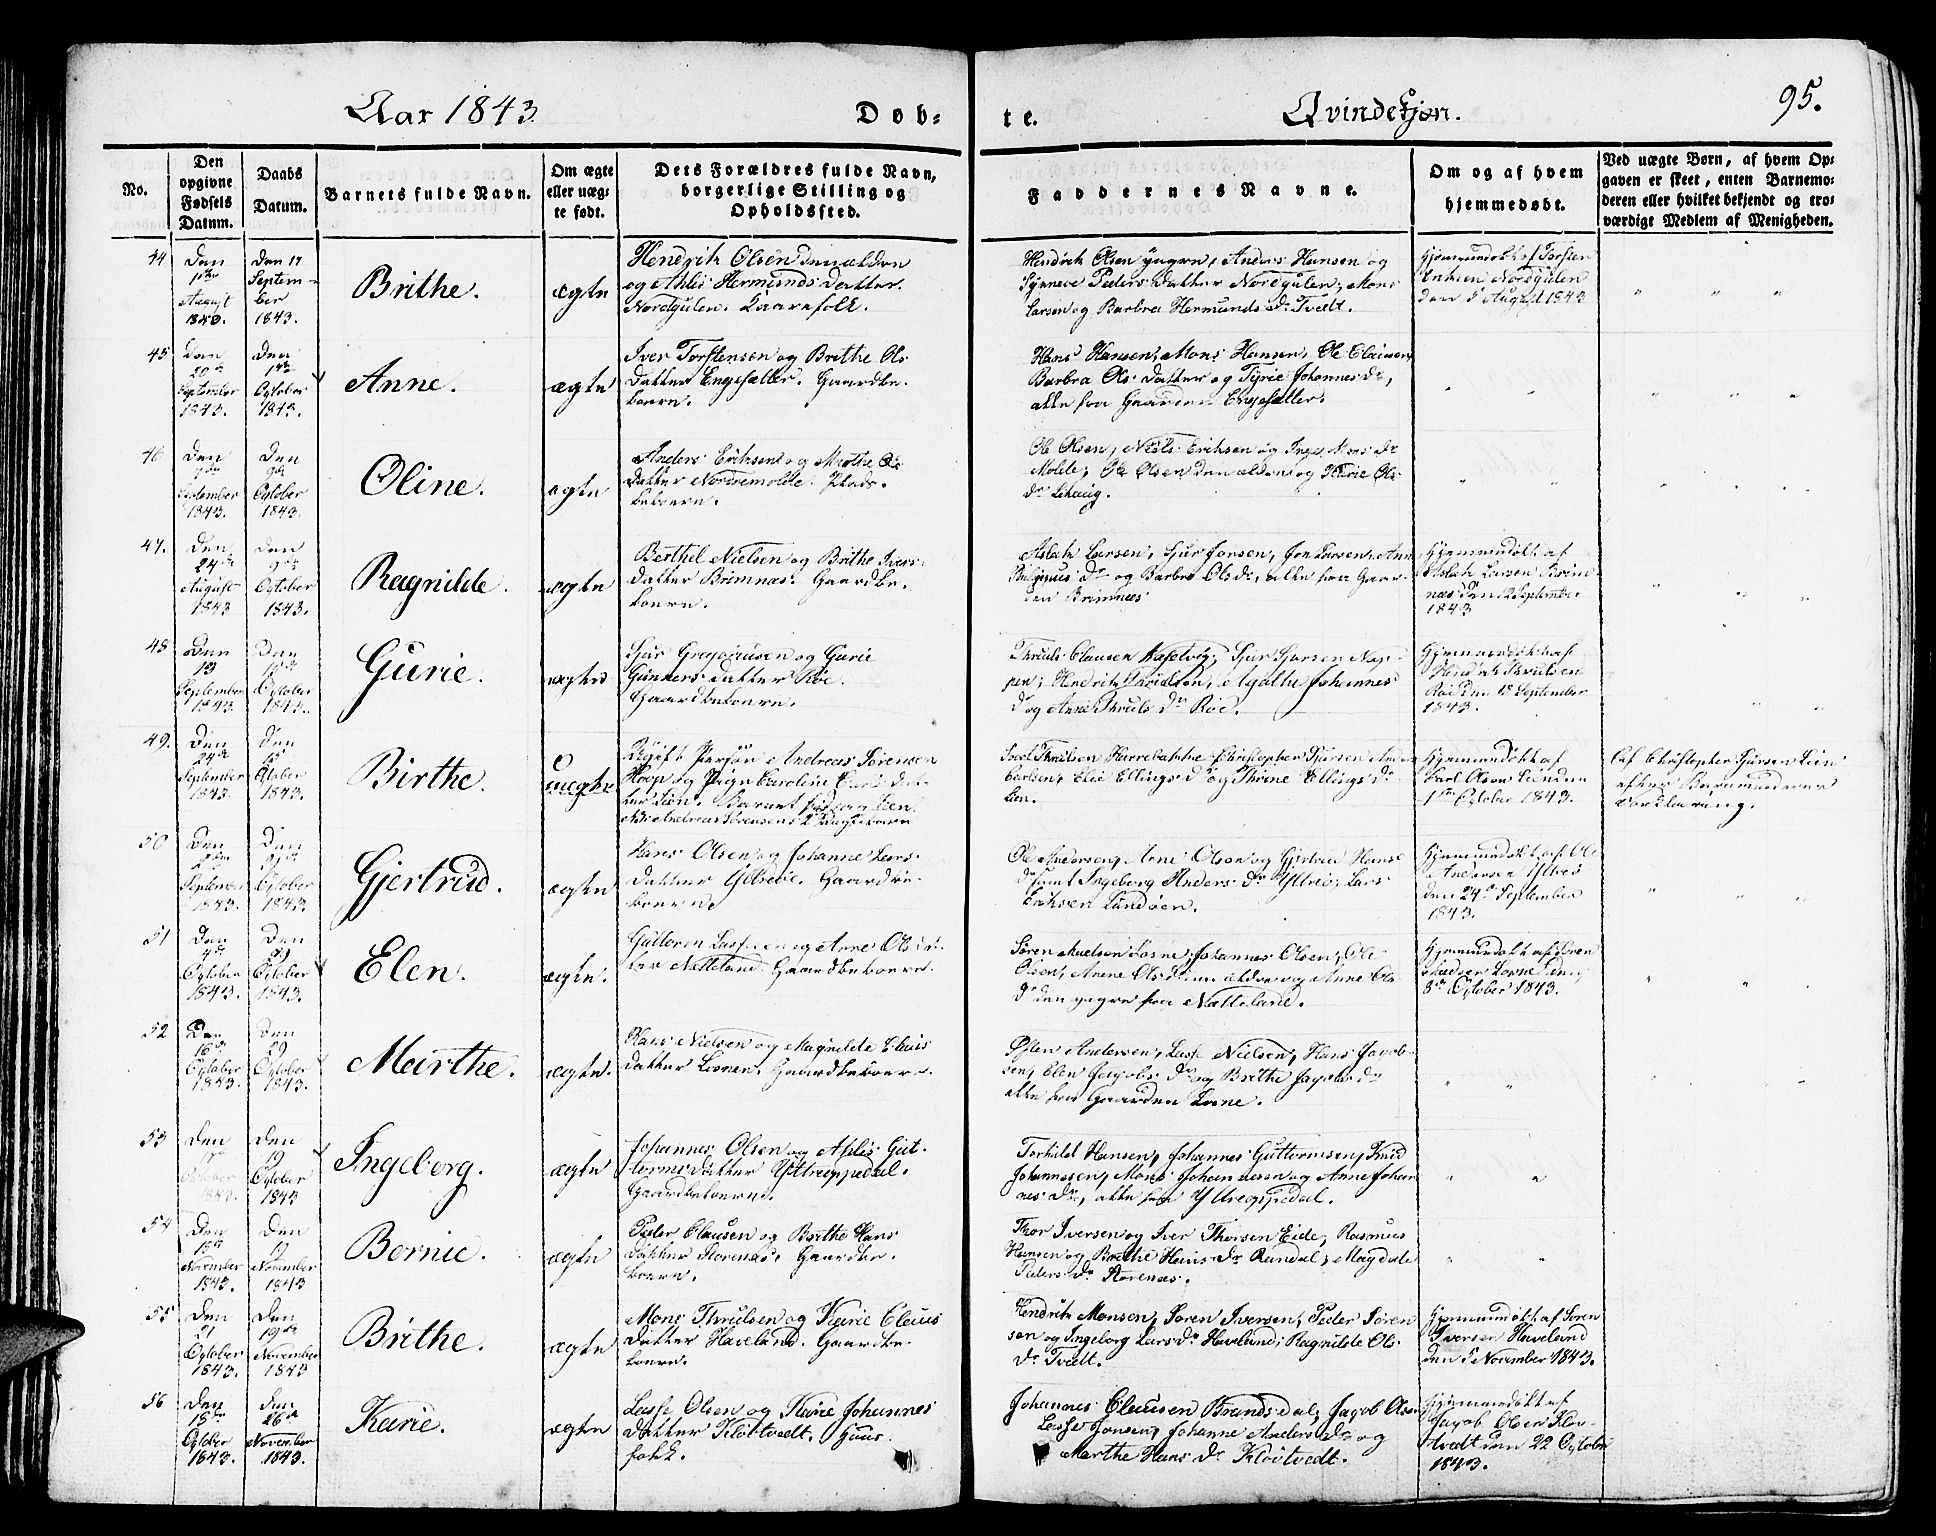 Aar 1843
Døb-
te.
Qvindekjøn.
95.
No.
Den opgivne Fødsels Datum.
Daabs Datum.
Barnets fulde Navn.
Om ægte eller uægte født.
Dets Forældres fulde Navn, borgerlige Stilling og Opholdssted.
Faddernes Navne.
Om og af hvem hjemmedøbt.
Ved uægte Børn, af hvem Opgaven er skeet, enten Barnemoderen eller hvilket bekjendt og troværdigt Medlem af Menigheden.
44
Den
August
1843.
Den 17
Septem-
ber
1843.
Brithe.
ægte
Hendrik Olsen den ældre
og Ahlis Hermunds datter
Nordgulen. Huusfolk.
Hendrik Olsen yngre, Anders Hansen og
Synneve Peders datter Nordgulen, Mons
Larsen og Barbra Hermunds Dr Tvedt.
Hjemmedøbt af Torsten
Nordgulen
den 5 August 1843
45
Den
20de
September
1843.
Den
1ste
October
1843.
Anne.
ægte
Iver Torstensen og Brithe Ols
datter Engesætter. Gaardbe-
boere.
Hans Hansen, Mons Hansen, Ole Clausen
Barbra Ols datter og Johannes Dr,
alle fra Gaarden Engesætter.
46
Den
September
1843.
Den
October
1843.
Oline.
ægte
Anders Eriksen og Marthe Ols
datter Nordremolde. Plads-
beboere.
Ole Olsen, Niels Eriksen og Inge Mons Dr
Molde, Ole Olsen den ældre og Ols
Dr
47.
Den
24de
August
1843
Den
October
1843.
Ragnilde.
ægte
Berthel Nielsen og Brithe Ivers
datter Brimnæs. Gaardbe-
boere.
Aslak Larsen, Sjur Jonsen, Jon Larsen, Anne
Dr og Barbra Ols Dr, alle fra Gaar-
den Brimnæs
Hjemmedøbt af
Aslak Larsen Brim-
næs den 12 September
1843
48
Den
13
September
1843.
Den
15de
October
1843.
Gurie.
ægte
Sjur Gregoriusen og Gurie
Gunners datter Roe.
Gaardbeboere.
Thruls Clausen Sjur Sjursen Nap-
pen, Hendrik Agathe Johannes
Dr og Anne Thruls Dr Roe.
Hjemmedøbt af
Hendrik Thrulsen
Roe den September
1843.
49.
Den
24de
September
1843.
Den
15
October
1843.
Birthe.
uægte
Ugift Person Andreas Sørensen
Hoop og Pige Caroline
Lien. Barnet
Andreas Sørensens 2
Thrulsen Christopher Sjursen
Elie Ellings Dr og Thrine Ellings Dr
Lien.
Hjemmedøbt af
Carl Olsen
1ste October 1843.
af Christopher Sjursen Lien
efter Barnemoderens
Forklaring.
50
Den
September
1843.
Den
October
1843.
Gjertrud.
ægte
Hans Olsen og Johanne Lars
datter Yttrøie. Gaardbe-
boere.
Ole Andersen, Arne Olsen og Gjertrud Hans
Dr samt Ingeborg Anders Dr Yttrøie, Lars
Eriksen Sundøen.
Hjemmedøbt af Ole
Andersen Yttrøe
den 24de September
1843.
51
Den
4de
October
1843.
Den
29
October
1843.
Elen.
ægte.
Guttorm Lassesen og Anne Ols dat-
ter Natteland. Gaardbeboere.
Søren Losne, Johannes Olsen, Ole
Olsen, Anne Ols Dr den ældre og Anne Ols
Dr den yngre fra Natteland.
Hjemmedøbt af Søren
Losne den
8de October 1843.
52
Den
16de
October
1843.
Den
29
October
1843.
Marthe.
ægte.
Hans Nielsen og Magnilde Claus
datter Losnen. Gaardbeboere.
Andersen, Lasse Nielsen, Hans Jacob-
sen, Elen Jacobs Dr og Brithe Jacobs Dr
alle fra Gaarden Losne.
53
Den
October
1843.
Den
19
October
1843
Ingeborg.
ægte
Johannes Olsen og Ahlis Gut-
torms datter Yttreoppedal.
Gaardbeboere.
Torkild Hansen, Johannes Guttormsen, Knud
Johannesen, Mons Johannesen og Anne Johan-
nes Dr, alle fra Yttreoppedal.
54
Den
November
1843.
Den
12
November
1843
Bernie.
ægte
Peder Clausen og Brithe Hans
datter Storenæs. Gaardbe-
boere.
Thor Iversen og Iver Thorsen Eide, Rasmus
Hansen og Brithe Hans Dr Rundal, Magdale
Peders Dr Storenæs.
55
Den
21
October
1843.
Den
19de
November
1843
Brithe.
ægte
Mons Thrulsen og Karie Claus
datter Haveland. Gaardbe-
boere.
Hendrik Monsen, Søren Iversen, Peder Søren
sen og Ingeborg Lars Dr Haveland, Ragnilde Ols
Dr Tvedt.
Hjemmedøbt af Søren
Iversen Haveland
den 5 November 1843.
56
Den
October
1843.
Den
26de
November
1843.
Karie.
ægte
Lasse Olsen og Karie Johannes
datter Kløvtvedt. Huus-
folk.
Johannes Clausen Brandsdal, Jacob Olsen
Lasse Jonsen, Johanne Anders Dr og
Marthe Hans Dr Kløvtvedt.
Hjemmedøbt af
Jacob Olsen Kløv-
tvedt den 22 October
1843.